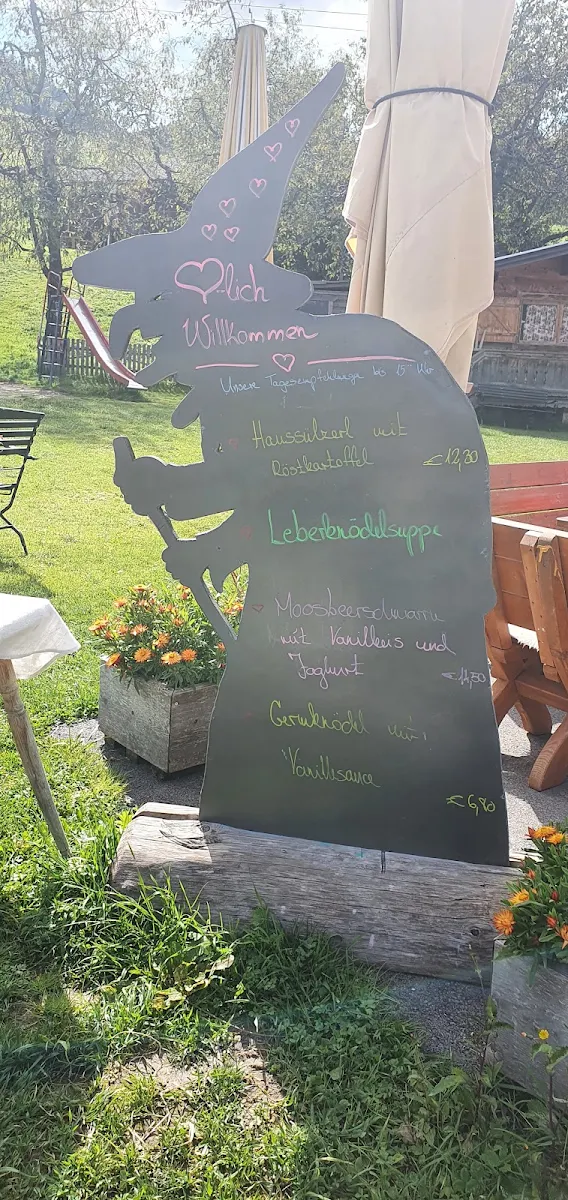 ♥-lich
Willkommen
Unsere Tagesempfehlungen bis 15 Uhr
Haussülzerl mit
Röstkartoffel €12,30
Leberknödelsuppe
Moosbeerschmarrn
mit Vanilleeis und
Joghurt
Germknödel mit
Vanillesauce
€6,80